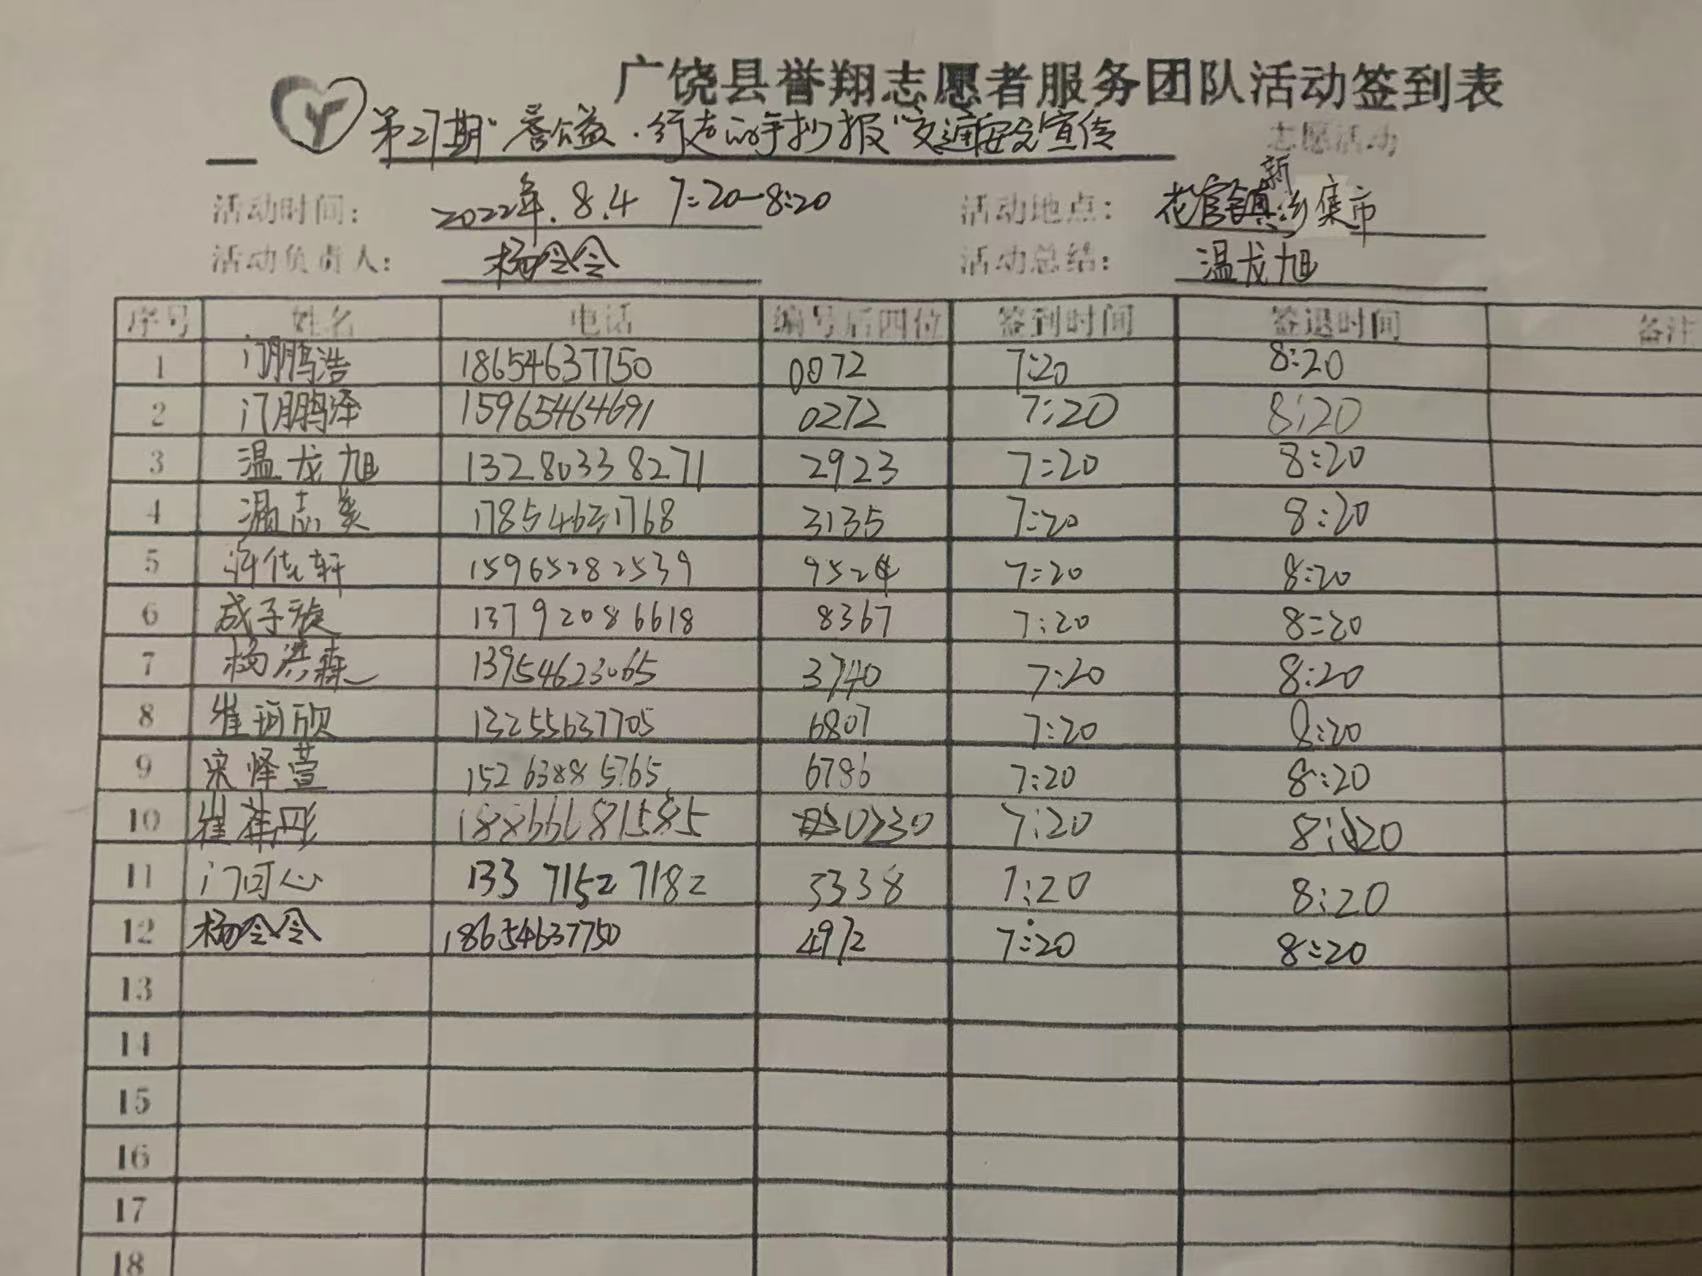 广饶县誉翔志愿者服务团队活动签到表
第27期"誉公益·行走的手抄报"交通安全宣传 志愿活动
活动时间: 2022年.8.4 7:20-8:20 活动地点: 花官镇新乡集市
活动负责人: 杨令令 活动总结: 温龙旭
序号 姓名 电话 编号后四位 签到时间 签退时间 备注
1 门鹏浩 18654637750 0072 7:20 8:20
2 门鹏泽 15965464691 0272 7:20 8:20
3 温龙旭 13280338271 2923 7:20 8:20
4 志美 17854631768 3135 7:20 8:20
5 许佳轩 15965282539 9524 7:20 8:20
6 成子旋 13792086618 8367 7:20 8:20
7 杨洪森 13954623065 3740 7:20 8:20
8 崔珂欣 13255637705 6807 7:20 8:20
9 宋怿萱 15263885765 6786 7:20 8:20
10 崔 彤 7:20 8:20
11 门可心 13371527182 3338 7:20 8:20
12 杨令令 18654637750 4972 7:20 8:20
13
14
15
16
17
18